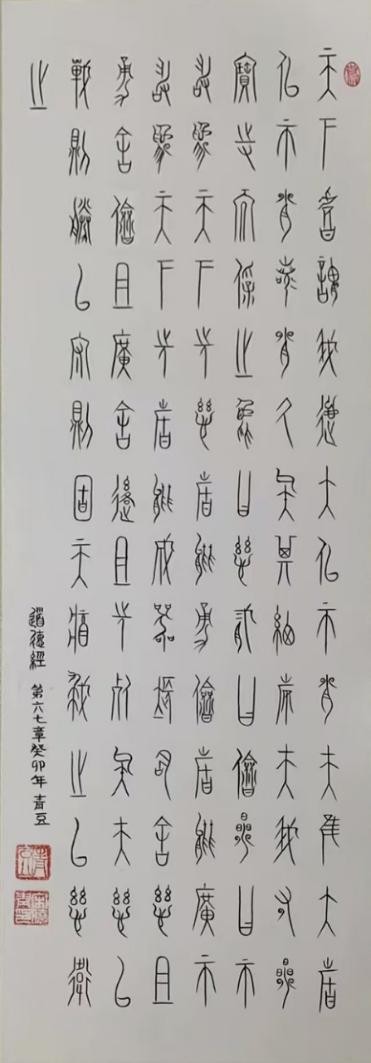 天下皆謂我道大似不肖夫唯大故
似不肖若肖久矣其細也夫我有三
寶持而保之一曰慈二曰儉三曰不
敢為天下先慈故能勇儉故能廣不
敢為天下先故能成器長今舍慈且
勇舍儉且廣舍後且先死矣夫慈以
戰則勝以守則固天將救之以慈衛
之
道德經 第六七章癸卯年青豆